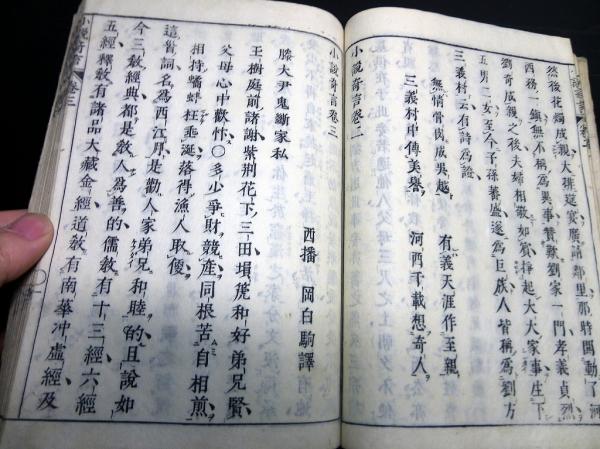 然後花燭成親大排筵宴廣請鄰里那時閧動了河
西務一鎮無不稱爲異事賛歎劉家一門孝義貞烈
劉奇成義之後夫婦相敬如賓掙起大大家事生下
五男二女至今子孫蕃盛遂爲巨族人皆稱爲劉方
三義村云有詩爲證
無情骨肉成吳越 有義天涯作至親
三義村中傳美譽 河西千載想奇人
小說奇言卷二
小說奇言卷三
西播 岡白駒譯
滕大尹鬼斷家私
玉樹庭前諸謝紫荊花下三田塤篪和好弟兄賢
父母心中歡忭〇多少爭財競產同根苦自相煎
相持鷸蚌枉垂涎落得漁人取便
這首詞名爲西江月是勸人家弟兄和睦的且說如
今三敎經典都是敎人爲善的儒敎有十三經六經
五經釋敎有諸品大藏金經道敎有南華冲虛經及
小說奇言 卷三